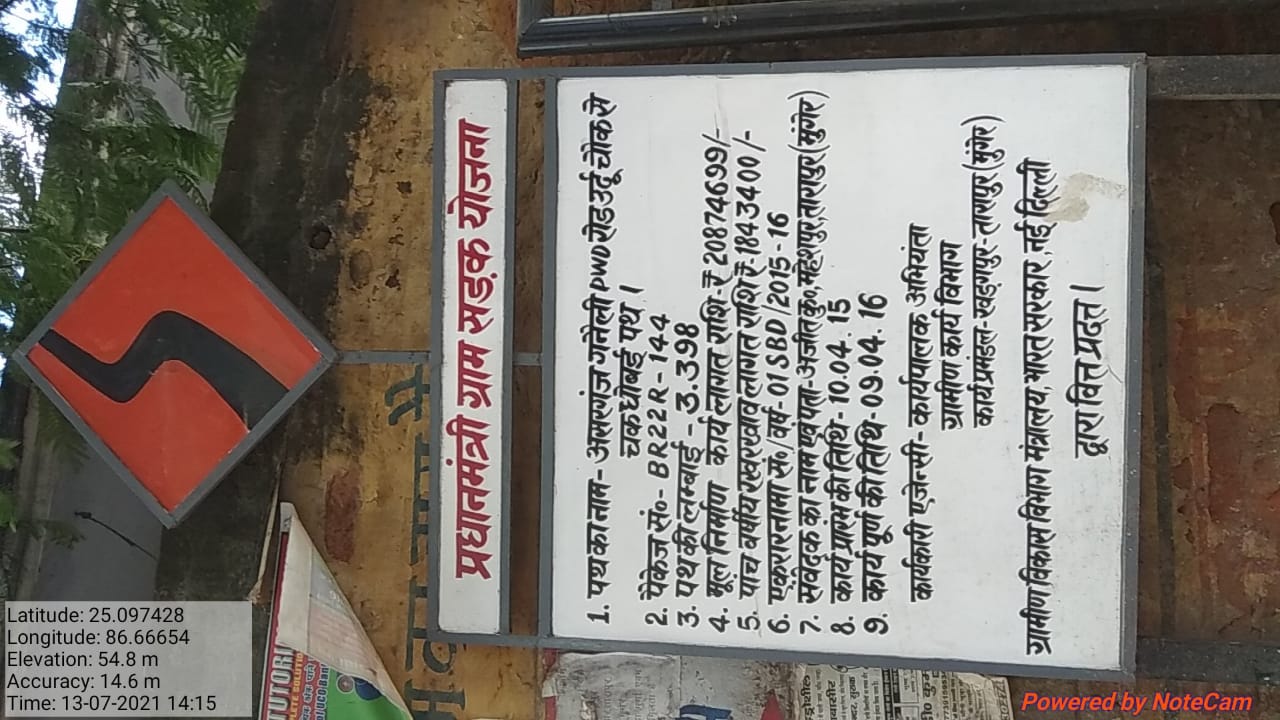 प्रधानमंत्री ग्राम सड़क योजना
1. पथ का नाम - असरगंज गनेली PWD रोड उर्दू चौक से
चकधोबई पथ ।
2. पैकेज सं०- BR22R-144
3. पथ की लम्बाई - 3.398
4. मूल निर्माण कार्य लागत राशि-₹ 20874699/-
5. पाच वर्षीय रखरखाव लागत राशि ₹ 1843400/-
6. एकरारनामा सं०/वर्ष- 01 SBD/2015-16
7. संवेदक का नाम एवं पता- अजीत कु०, महेशपुर, तारापुर (मुंगेर)
8. कार्य प्रारंभ की तिथि- 10.04.15
9. कार्य पूर्ण की तिथि- 09.04.16
कार्यकारी एजेन्सी - कार्यपालक अभियंता
ग्रामीण कार्य विभाग
कार्य प्रमंडल- खड़गपुर-तारापुर (मुंगेर)
ग्रामीण विकास विभाग मंत्रालय, भारत सरकार, नई दिल्ली
द्वारा वित्त प्रदत्त ।
UTORI
Latitude: 25.097428
Longitude: 86.66654
Elevation: 54.8 m
Accuracy: 14.6 m
Time: 13-07-2021 14:15
Powered by NoteCam